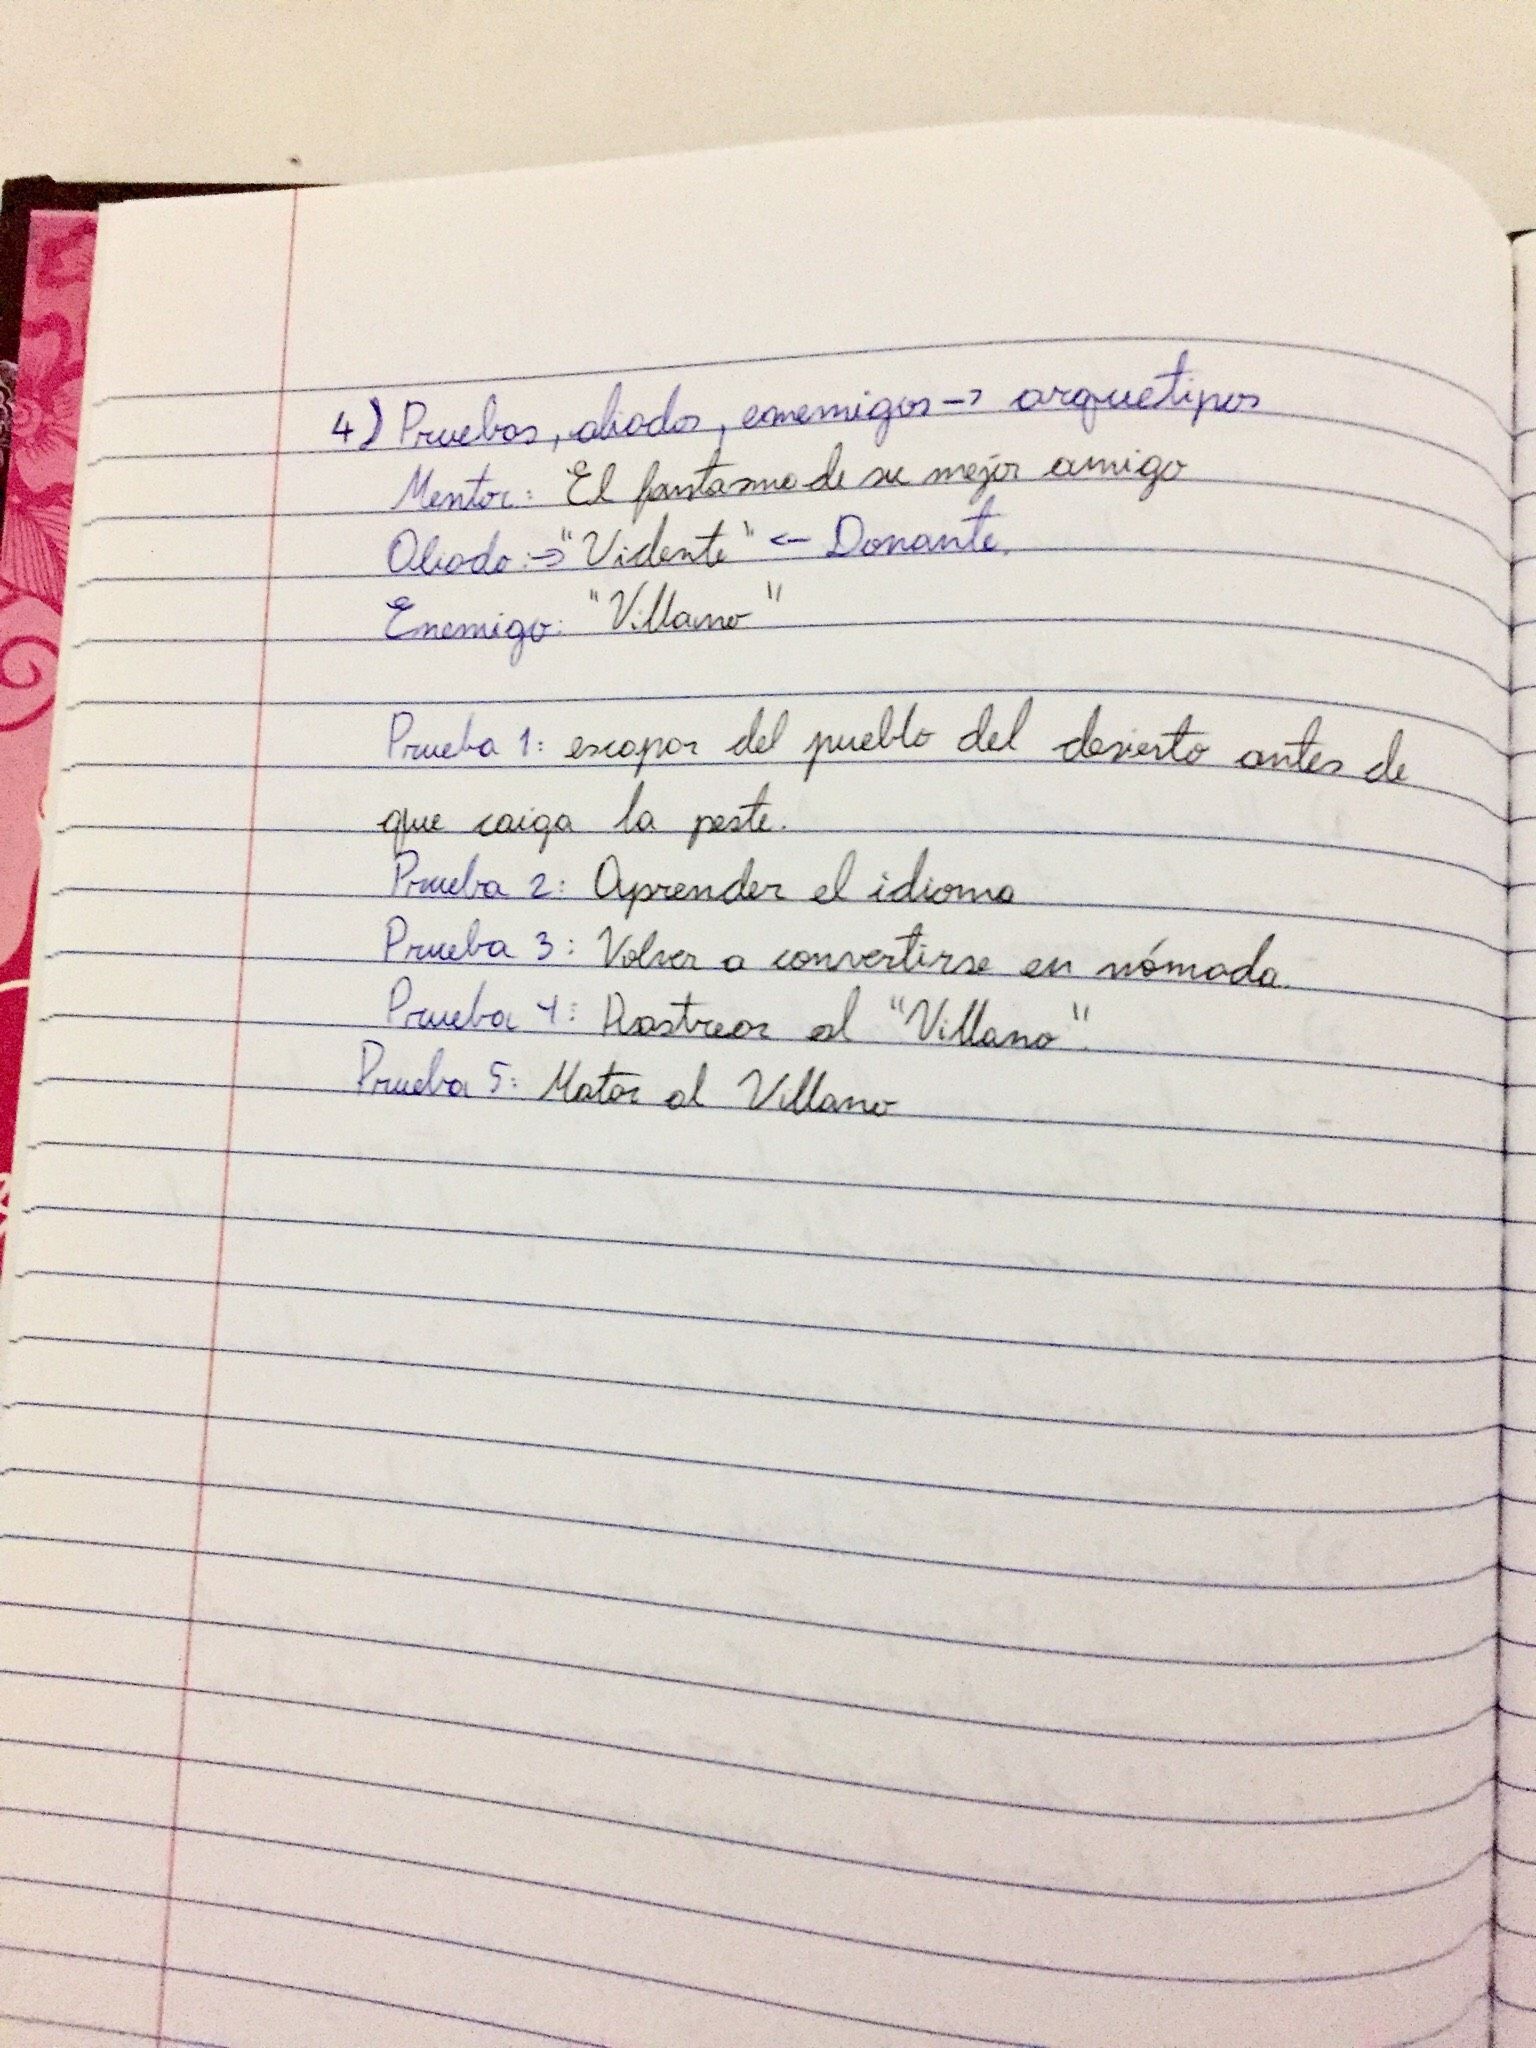 4) Pruebas, aliados, enemigos → arquetipos
Mentor: El fantasma de su mejor amigo
Aliado: → "Vidente" ← Donante.
Enemigo: "Villano"
Prueba 1: escapar del pueblo del desierto antes de
que caiga la peste.
Prueba 2: Aprender el idioma
Prueba 3: Volver a convertirse en nómada.
Prueba 4: Rastrear al "Villano".
Prueba 5: Matar al Villano